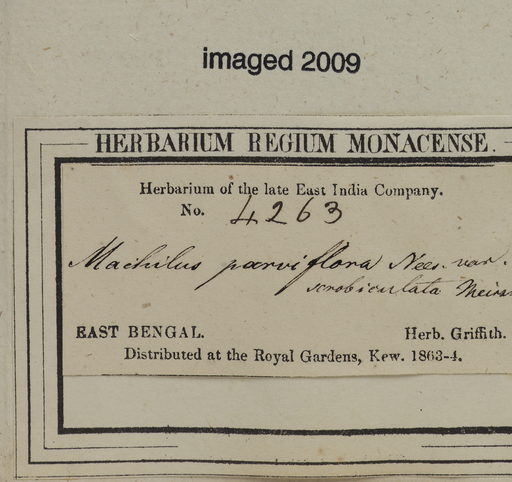 imaged 2009
HERBARIUM REGIUM MONACENSE.
Herbarium of the late East India Company.
No. 4263
Machilus parviflora Nees. var.
scrobiculata Meisn
EAST BENGAL. Herb. Griffith.
Distributed at the Royal Gardens, Kew. 1863-4.